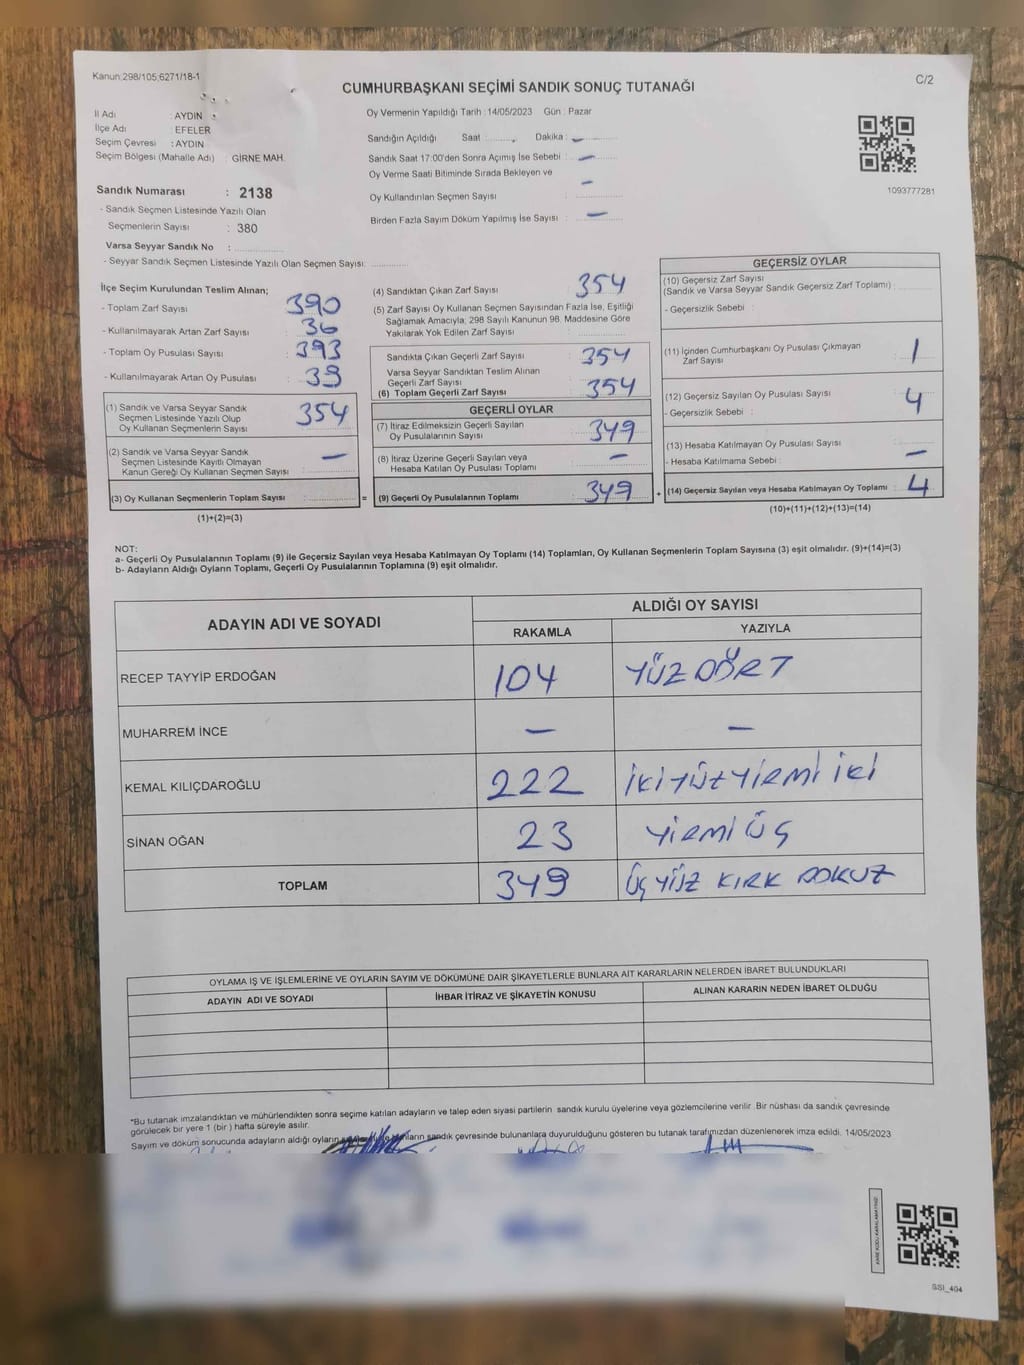 Kanun:298/105;6271/18-1
C/2
CUMHURBAŞKANI SEÇİMİ SANDIK SONUÇ TUTANAĞI
Oy Vermenin Yapıldığı Tarih : 14/05/2023 Gün : Pazar
İl Adı : AYDIN
İlçe Adı : EFELER
Seçim Çevresi : AYDIN
Seçim Bölgesi (Mahalle Adı) : GİRNE MAH.
Sandık Numarası : 2138
- Sandık Seçmen Listesinde Yazılı Olan
Seçmenlerin Sayısı : 380
Varsa Seyyar Sandık No :
- Seyyar Sandık Seçmen Listesinde Yazılı Olan Seçmen Sayısı:
Sandığın Açıldığı Saat : Dakika : –
Sandık Saat 17:00'den Sonra Açımış İse Sebebi : –
Oy Verme Saati Bitiminde Sırada Bekleyen ve
Oy Kullandırılan Seçmen Sayısı : –
Birden Fazla Sayım Döküm Yapılmış İse Sayısı : –
1093777281
İlçe Seçim Kurulundan Teslim Alınan;
- Toplam Zarf Sayısı : 390
- Kullanılmayarak Artan Zarf Sayısı : 36
- Toplam Oy Pusulası Sayısı : 393
- Kullanılmayarak Artan Oy Pusulası : 39
(1) Sandık ve Varsa Seyyar Sandık
Seçmen Listesinde Yazılı Olup
Oy Kullanan Seçmenlerin Sayısı : 354
(2) Sandık ve Varsa Seyyar Sandık
Seçmen Listesinde Kayıtlı Olmayan
Kanun Gereği Oy Kullanan Seçmen Sayısı : –
(3) Oy Kullanan Seçmenlerin Toplam Sayısı :
(1)+(2)=(3)
(4) Sandıktan Çıkan Zarf Sayısı : 354
(5) Zarf Sayısı Oy Kullanan Seçmen Sayısından Fazla İse, Eşitliği
Sağlamak Amacıyla; 298 Sayılı Kanunun 98. Maddesine Göre
Yakılarak Yok Edilen Zarf Sayısı :
Sandıkta Çıkan Geçerli Zarf Sayısı : 354
Varsa Seyyar Sandıktan Teslim Alınan
Geçerli Zarf Sayısı :
(6) Toplam Geçerli Zarf Sayısı : 354
GEÇERLİ OYLAR
(7) İtiraz Edilmeksizin Geçerli Sayılan
Oy Pusulalarının Sayısı : 349
(8) İtiraz Üzerine Geçerli Sayılan veya
Hesaba Katılan Oy Pusulası Toplamı : –
= (9) Geçerli Oy Pusulalarının Toplamı : 349
GEÇERSİZ OYLAR
(10) Geçersiz Zarf Sayısı
(Sandık ve Varsa Seyyar Sandık Geçersiz Zarf Toplamı) :
- Geçersizlik Sebebi :
(11) İçinden Cumhurbaşkanı Oy Pusulası Çıkmayan
Zarf Sayısı : 1
(12) Geçersiz Sayılan Oy Pusulası Sayısı : 4
- Geçersizlik Sebebi :
(13) Hesaba Katılmayan Oy Pusulası Sayısı : –
- Hesaba Katılmama Sebebi :
+ (14) Geçersiz Sayılan veya Hesaba Katılmayan Oy Toplamı : 4
(10)+(11)+(12)+(13)=(14)
NOT:
a- Geçerli Oy Pusulalarının Toplamı (9) ile Geçersiz Sayılan veya Hesaba Katılmayan Oy Toplamı (14) Toplamları, Oy Kullanan Seçmenlerin Toplam Sayısına (3) eşit olmalıdır. (9)+(14)=(3)
b- Adayların Aldığı Oyların Toplamı, Geçerli Oy Pusulalarının Toplamına (9) eşit olmalıdır.
ADAYIN ADI VE SOYADI
ALDIĞI OY SAYISI
RAKAMLA YAZIYLA
RECEP TAYYİP ERDOĞAN 104 YÜZ DÖRT
MUHARREM İNCE – –
KEMAL KILIÇDAROĞLU 222 İKİ YÜZ YİRMİ İKİ
SİNAN OĞAN 23 YİRMİ ÜÇ
TOPLAM 349 ÜÇ YÜZ KIRK DOKUZ
OYLAMA İŞ VE İŞLEMLERİNE VE OYLARIN SAYIM VE DÖKÜMÜNE DAİR ŞİKAYETLERLE BUNLARA AİT KARARLARIN NELERDEN İBARET BULUNDUKLARI
ADAYIN ADI VE SOYADI İHBAR İTİRAZ VE ŞİKAYETİN KONUSU ALINAN KARARIN NEDEN İBARET OLDUĞU
*Bu tutanak imzalandıktan ve mühürlendikten sonra seçime katılan adayların ve talep eden siyasi partilerin sandık kurulu üyelerine veya gözlemcilerine verilir. Bir nüshası da sandık çevresinde
görülecek bir yere 1 (bir) hafta süreyle asılır.
Sayım ve döküm sonucunda adayların aldığı oyların sandık çevresinde bulunanlara duyurulduğunu gösteren bu tutanak tarafımızdan düzenlenerek imza edildi. 14/05/2023
KARE KODU KARALAMAYINIZ!
SSI_404